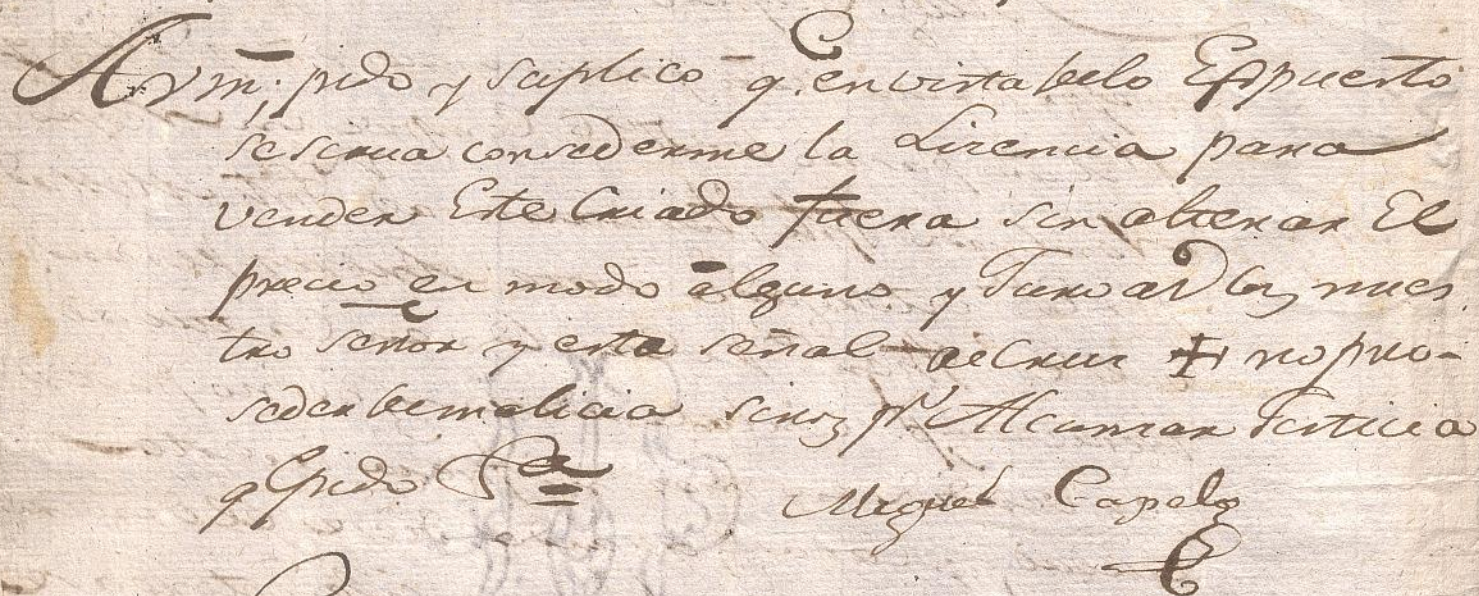 A Vm. pido y suplico q.e en vista delo Espuesto
se sirua consederme la Lisencia para
vender Este Criado fuera sin alterar El
precio en modo alguno y Juro a D.s nues
tro señor y esta señal de Cruz + no pro-
seder de malicia sino p.r Alcansar Justicia
q.e pido
Miguel Capelo